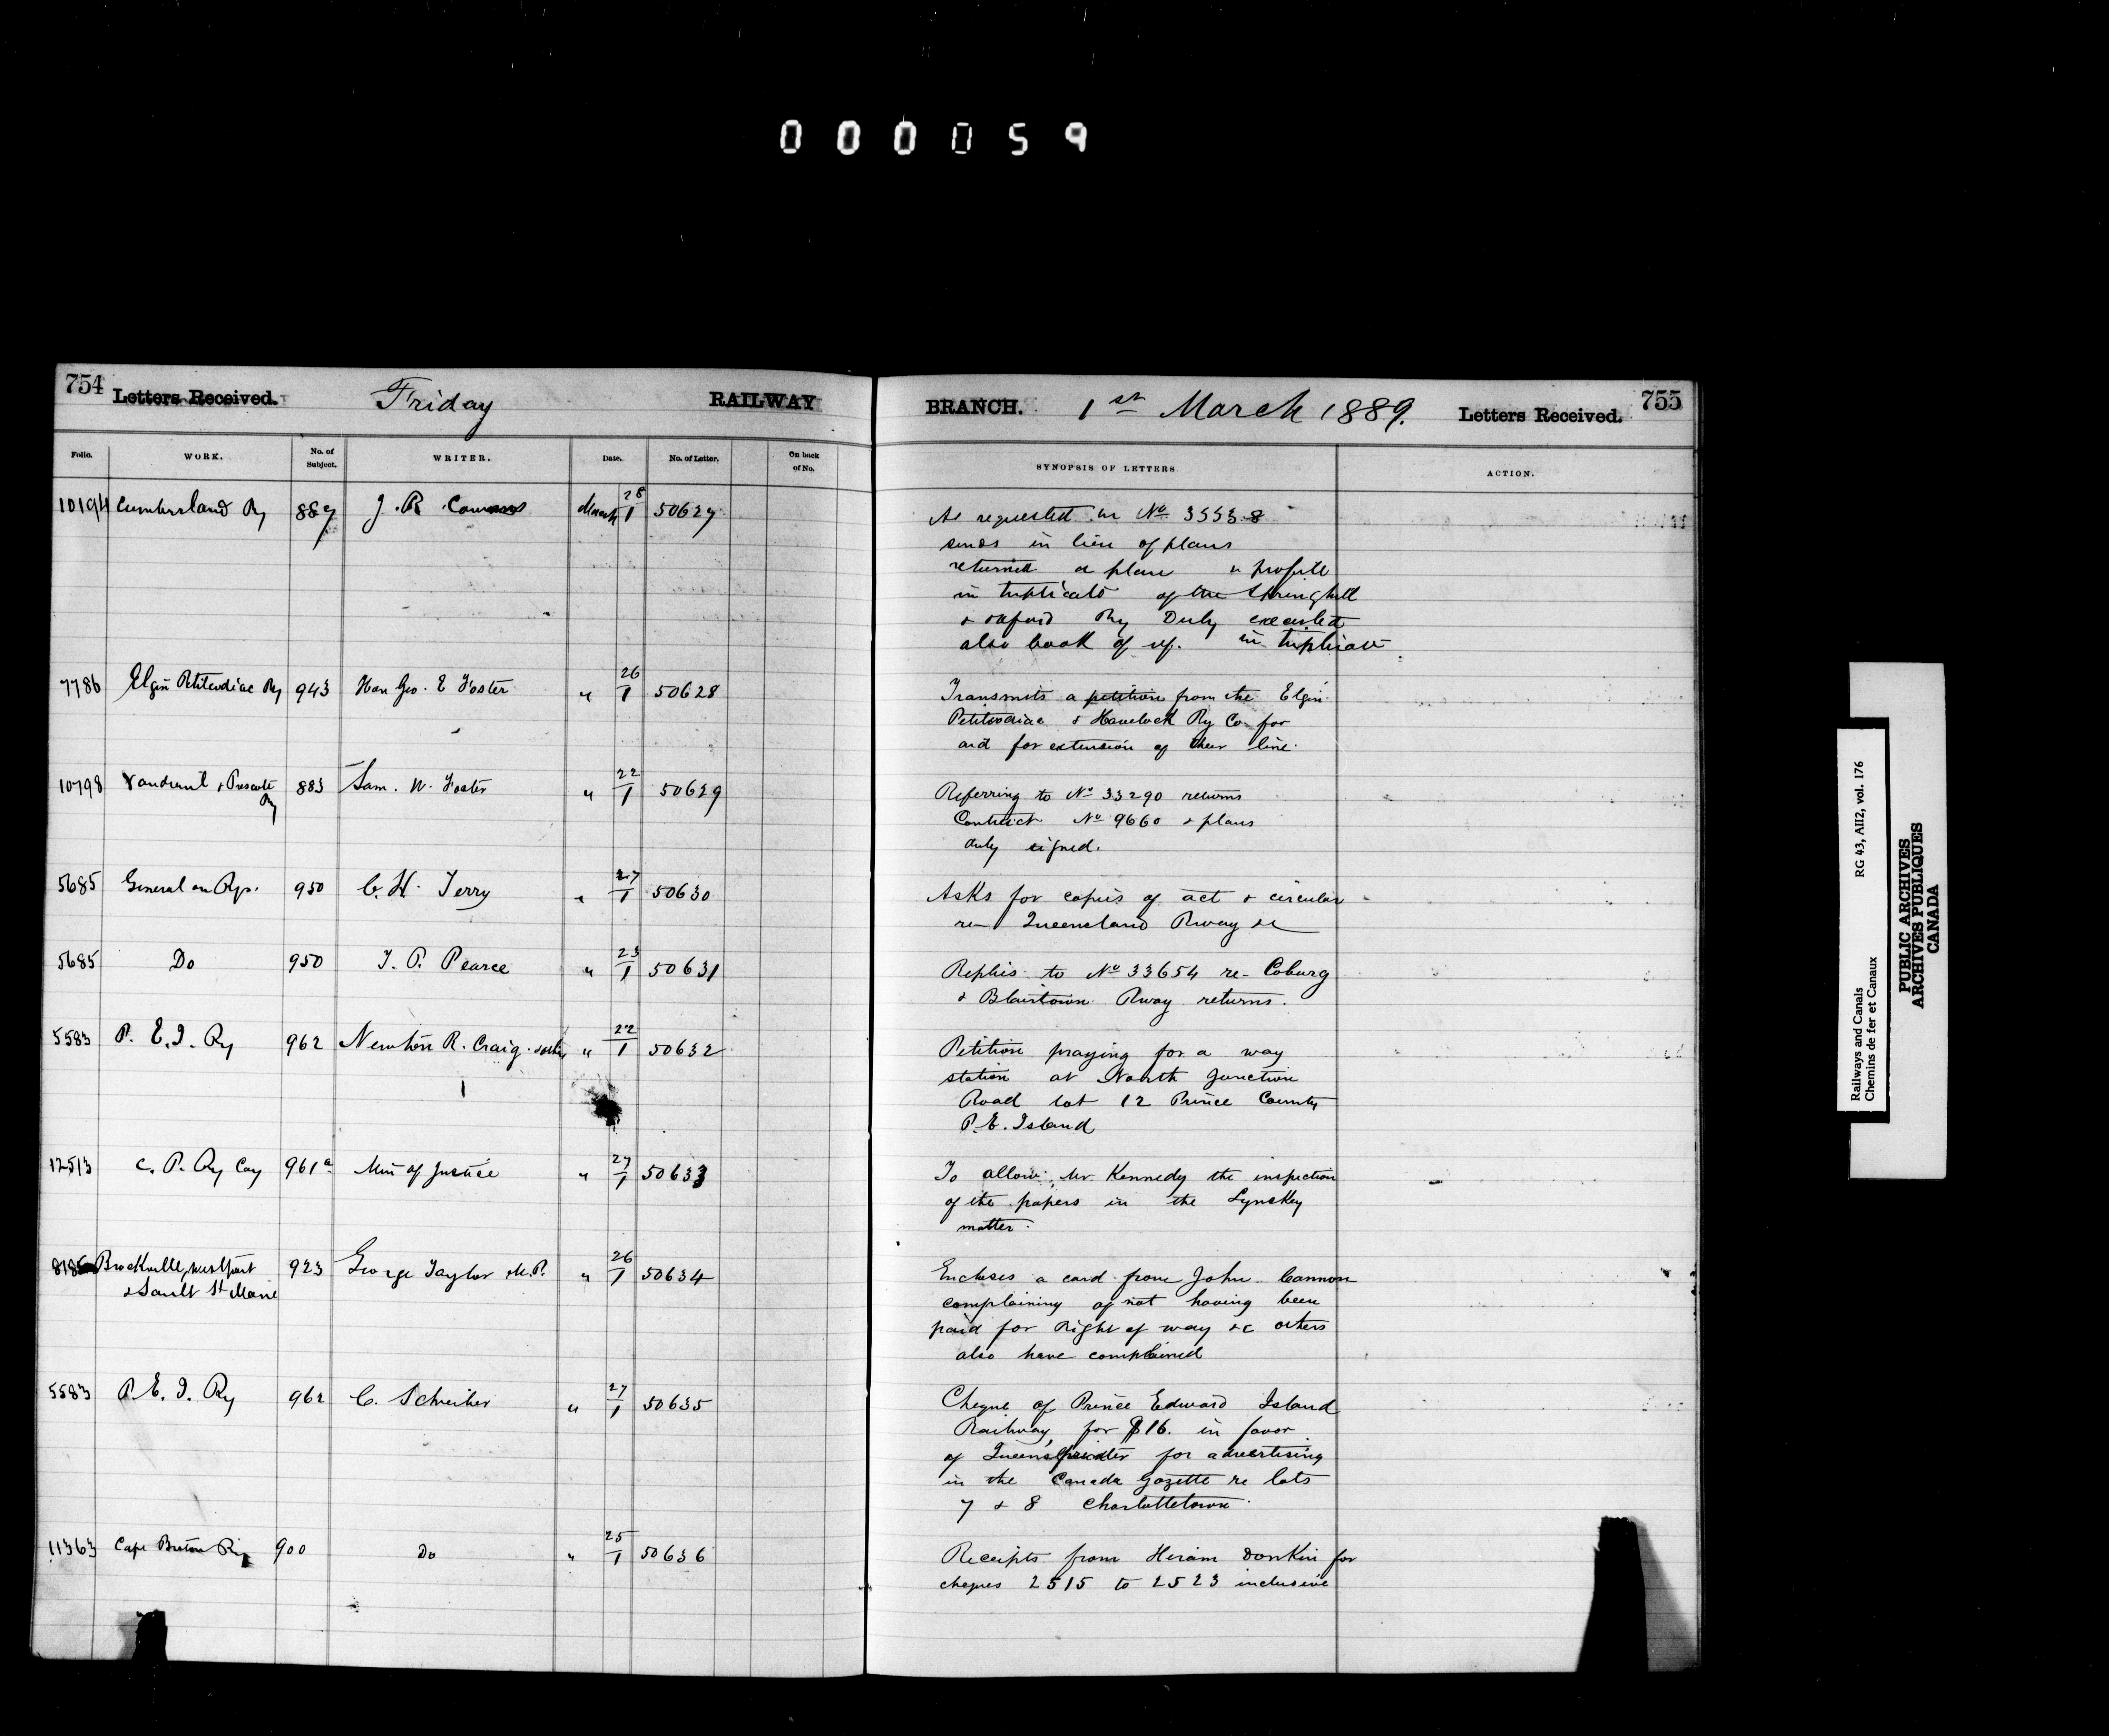 000059
754 Letters Received. Friday RAILWAY
BRANCH. 1st March 1889. Letters Received. 755
Folio. WORK. No. of Subject. WRITER. Date. No. of Letter. On back of No.
SYNOPSIS OF LETTERS. ACTION.
10194 Cumberland Ry 887 J. R. Cowans March 28/1 50627
As requested in No 35538
sends in lieu of plans
returned a plan & profile
in triplicate of the Springhill
& Oxford Ry Duly executed
also book of ref. in triplicate
7786 Elgin Petitcodiac Ry 943 Hon Geo. E Foster " 26/1 50628
Transmits a petition from the Elgin
Petitcodiac & Havelock Ry Co for
aid for extension of their line.
10798 Vaudreuil & Prescott Ry 883 Sam. N. Foster " 22/1 50629
Referring to No 33290 returns
Contract No 9660 & plans
duly signed.
5685 General on Rys. 950 C. H. Terry " 27/1 50630
Asks for copies of act & circular
re- Queensland Rway &c
5685 Do 950 T. P. Pearce " 23/1 50631
Replies to No 33654 re- Coburg
& Blairtown Rway returns.
5583 P. E. I. Ry 962 Newton R. Craig & others " 22/1 50632
Petition praying for a way
station at North Junction
Road lot 12 Prince County
P. E. Island
12513 C. P. Ry Coy 961a Min of Justice " 27/1 50633
To allow Mr. Kennedy the inspection
of the papers in the Lynskey
matter.
8186 Brockville, Westport & Sault St Marie 923 George Taylor M.P. " 26/1 50634
Encloses a card from John Cannon
complaining of not having been
paid for Right of way &c others
also have complained
5583 P. E. I. Ry 962 C. Schreiber " 27/1 50635
Cheque of Prince Edward Island
Railway, for $16. in favor
of Queens printer for advertising
in the Canada Gazette re lots
7 & 8 Charlottetown.
11363 Cape Breton Ry 900 Do " 25/1 50636
Receipts from Hiram Donkin for
cheques 2515 to 2523 inclusive
Railways and Canals RG 43, AII2, vol. 176
Chemins de fer et Canaux
PUBLIC ARCHIVES
ARCHIVES PUBLIQUES
CANADA